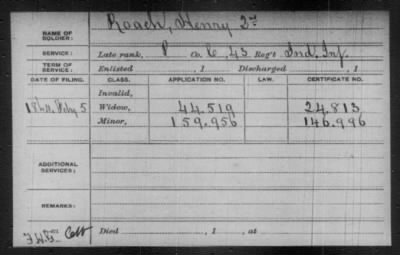 NAME OF SOLDIER: Roach, Henry 2d
SERVICE: Late rank, P Co. C, 43 Reg't Ind. Inf.
TERM OF SERVICE: Enlisted , 1 Discharged , 1
DATE OF FILING. CLASS. APPLICATION NO. LAW. CERTIFICATE NO.
Invalid,
1864 Feby 5 Widow, 44.519 24.813
Minor, 159.956 146.996
ADDITIONAL SERVICES:
REMARKS:
Died , 1 , at